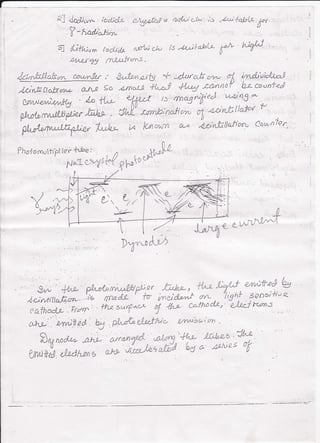 4] Sodium Iodide crystal which is suitable for
γ-radiation
5] Lithium Iodide which is suitable for high
energy neutrons.
Scintillation counter: Intensity & duration of individual
scintillations are so small that they cannot be counted
conveniently so the effect is magnified using a
photomultiplier tube. The combination of scintillator &
photomultiplier tube is known as scintillation counter.
Photomultiplier tube:
NaI crystal photocathode
light e e e e
γ rays
Dynodes large current
In the photomultiplier tube, the light emitted by
scintillation is made to incident on light sensitive
cathode. From the surface of the cathode, electrons
are emitted by photoelectric emission.
Dynodes are arranged along the tubes. The
emitted electrons are accelerated by a series of